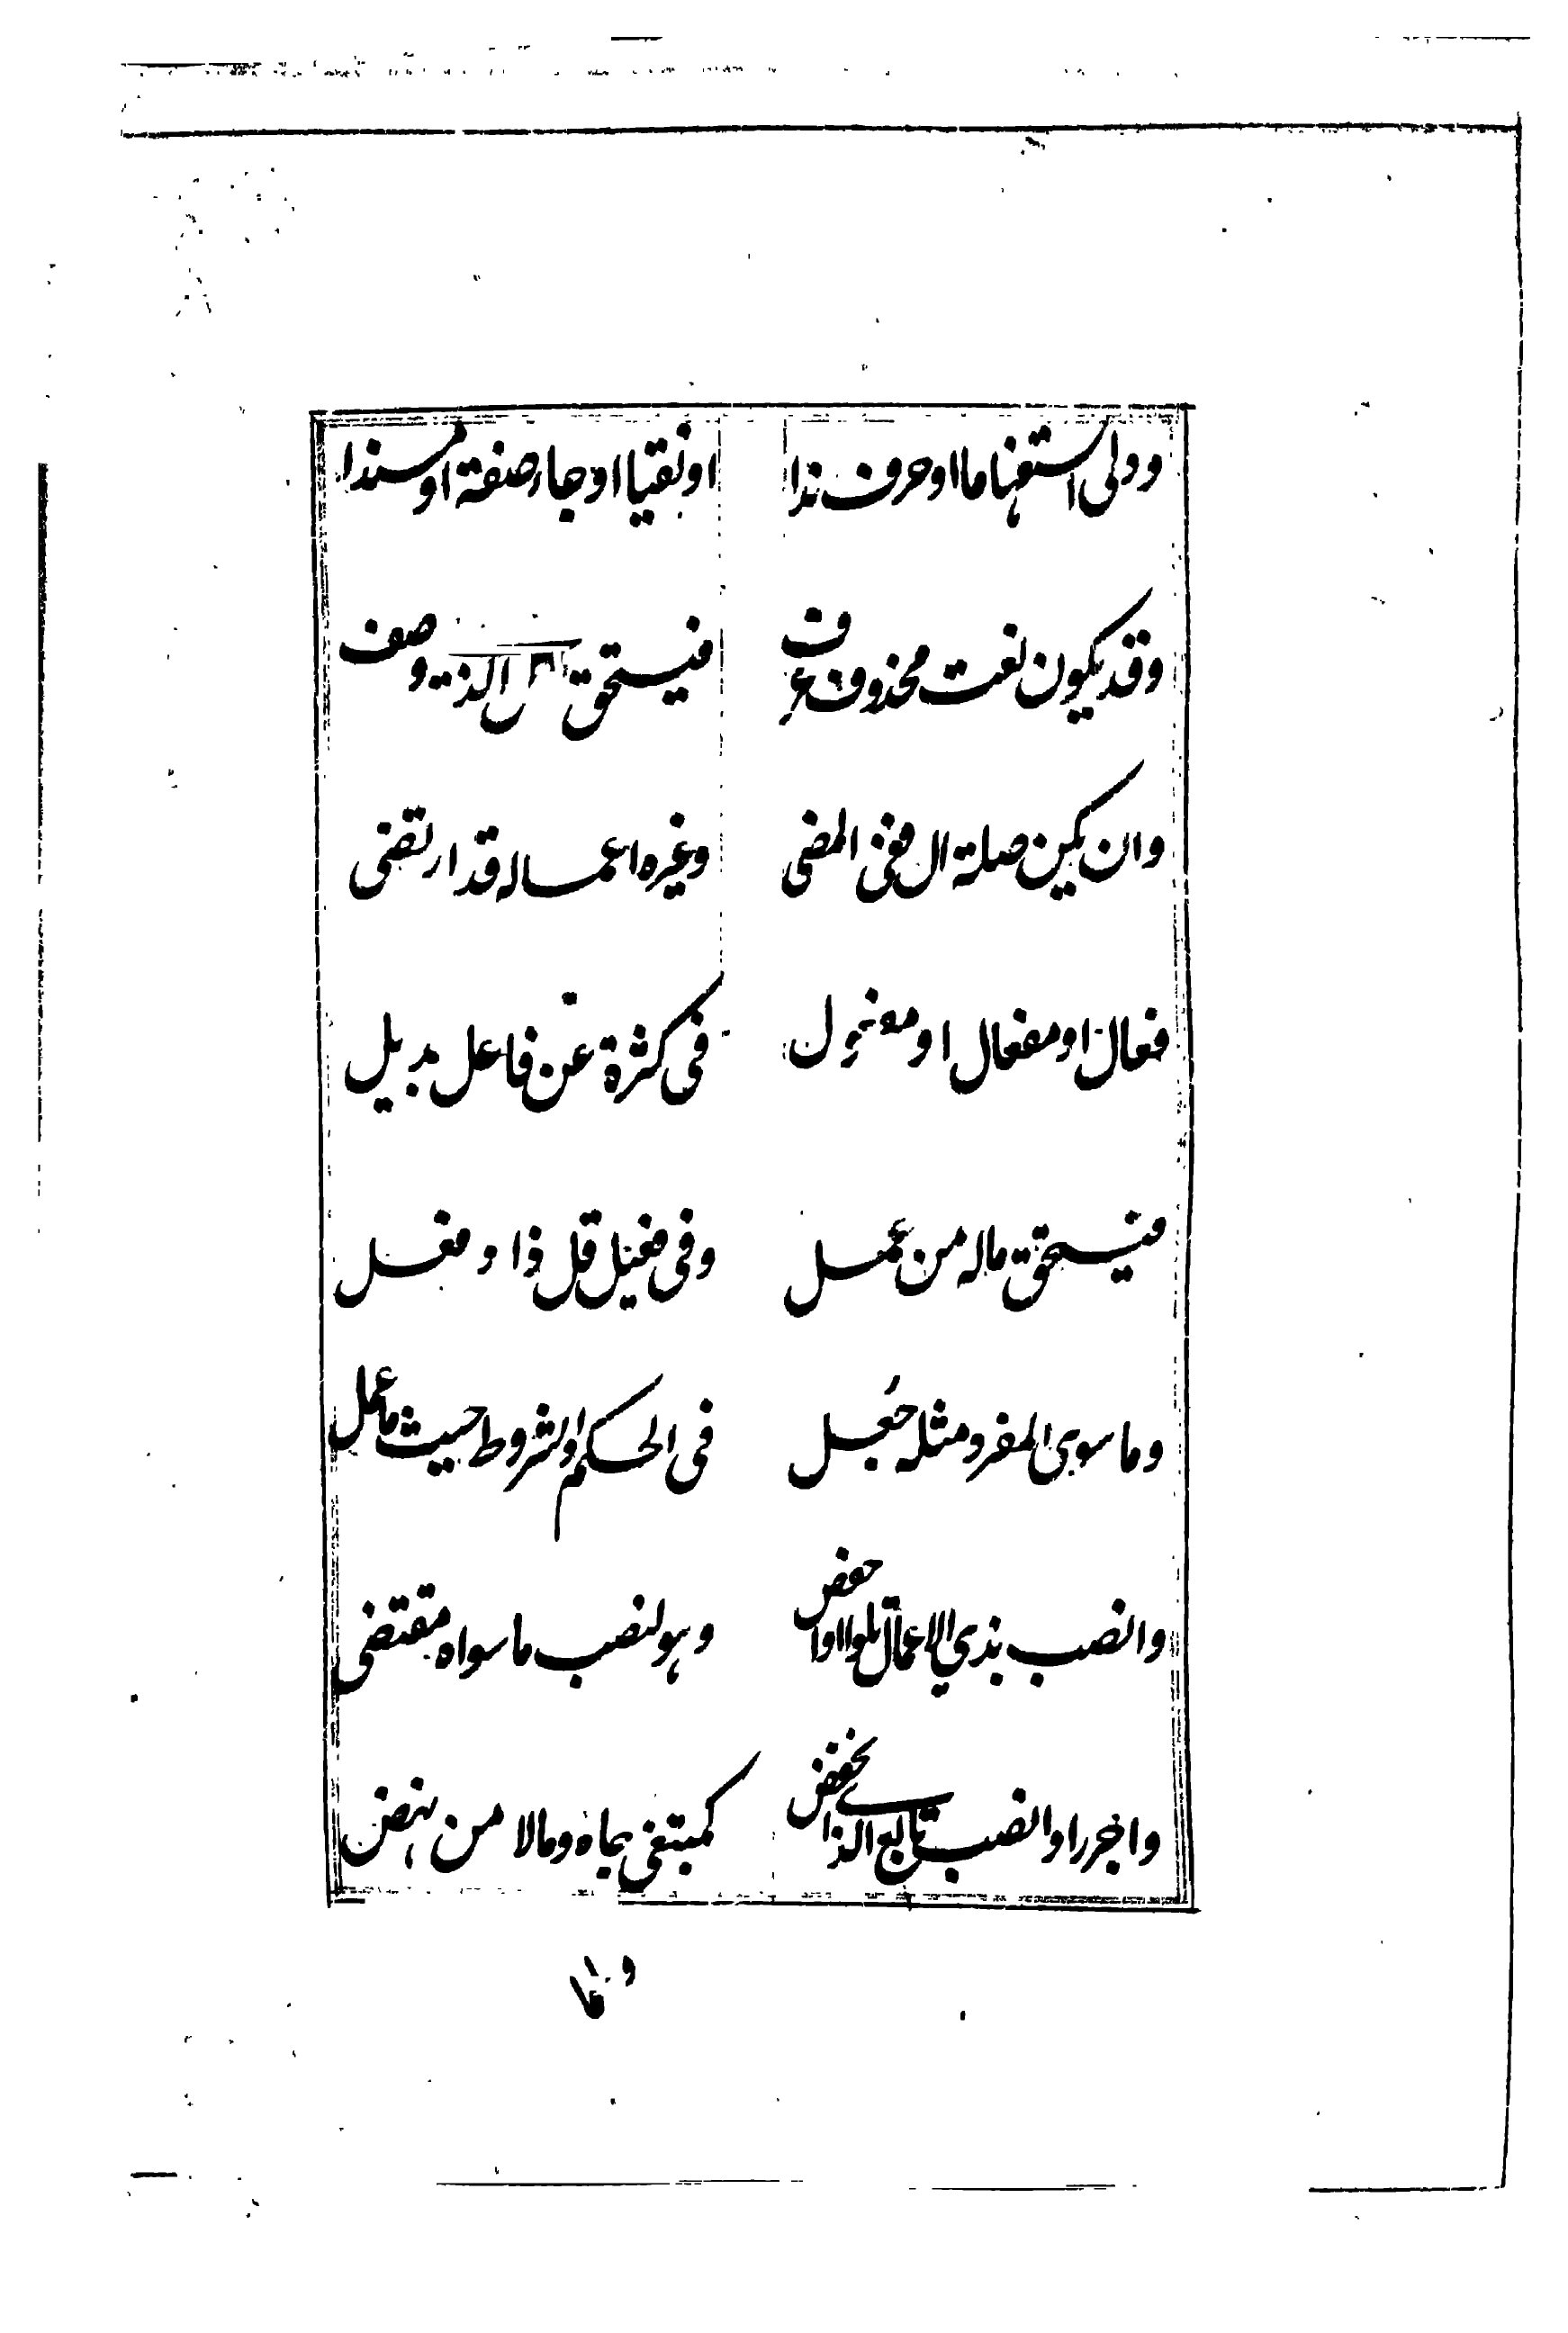 وولی استفهاما او حرف ندا    او نفیا او جاء صفة او مسندا
وقد یکون نعت محذوف عرف    فیستحق الذی وصف
وان یکن صلة ال ففی المضی    وغیره اعماله قد ارتضی
فعال او مفعال او فعول    فی کثرة عن فاعل بدیل
فیستحق ماله من عمل    وفی فعیل قل ذا وفعل
وما سوی المفرد مثله جعل    فی الحکم والشروط حیث ما عمل
وانصب بذی الاعمال تلوا واخفض    وهو لنصب ما سواه مقتضی
واجرر او انصب تابع الذی انخفض    کمبتغی جاه ومالا من نهض